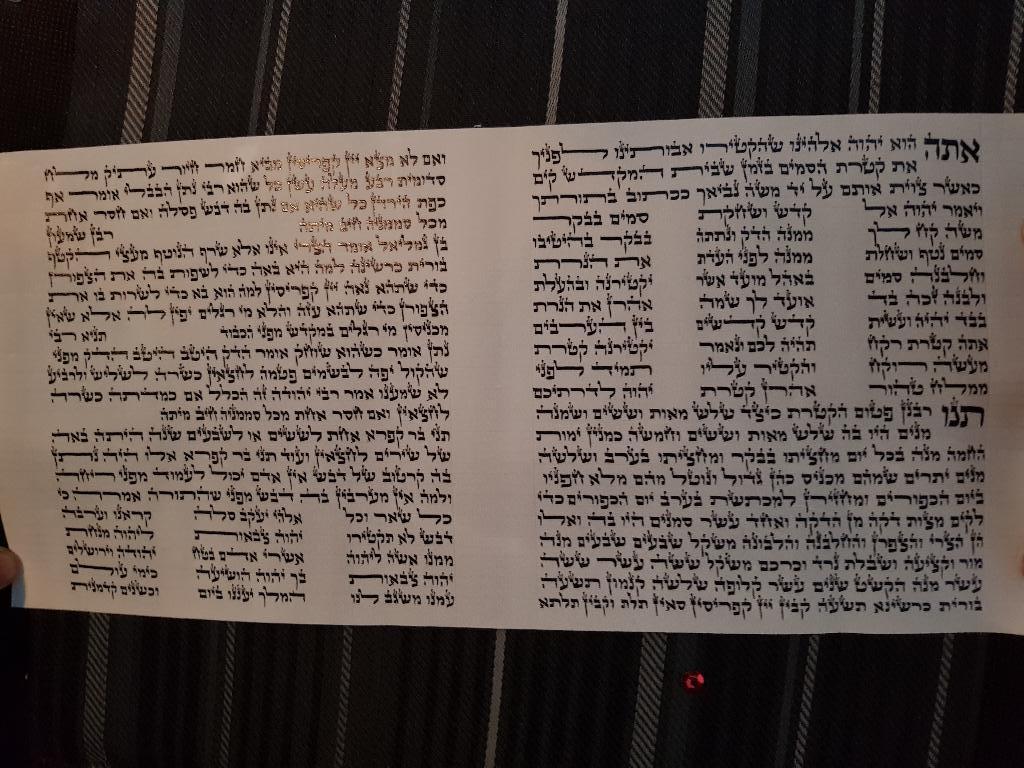 אתה הוא יהוה אלהינו שהקטירו אבותינו לפניך
את קטרת הסמים בזמן שבית המקדש קים
כאשר צוית אותם על יד משה נביאך ככתוב בתורתך
ויאמר יהוה אל
משה קח לך
סמים נטף ושחלת
וחלבנה סמים
ולבנה זכה בד
בבד יהיה ועשית
אתה קטרת רקח
מעשה רוקח
ממלח טהור
קדש ושחקת
ממנה הדק ונתתה
ממנה לפני העדת
באהל מועד אשר
אועד לך שמה
קדש קדשים
תהיה לכם ונאמר
והקטיר עליו
אהרן קטרת
סמים בבקר
בבקר בהיטיבו
את הנרת
יקטירנה ובהעלת
אהרן את הנרת
בין הערבים
יקטירנה קטרת
תמיד לפני
יהוה לדרתיכם
תנו רבנן פטום הקטרת כיצד שלש מאות וששים ושמנה
מנים היו בה שלש מאות וששים וחמשה כמנין ימות
החמה מנה בכל יום מחציתו בבקר ומחציתו בערב ושלשה
מנים יתרים שמהם מכניס כהן גדול ונוטל מהם מלא חפניו
ביום הכפורים ומחזירן למכתשת בערב יום הכפורים כדי
לקים מצות דקה מן הדקה ואחד עשר סמנים היו בה ואלו
הן הצרי והצפרן והחלבנה והלבונה משקל שבעים שבעים מנה
מור וקציעה ושבלת נרד וכרכם משקל ששה עשר ששה
עשר מנה הקשט שנים עשר קלופה שלשה קנמון תשעה
בורית כרשינא תשעה קבין יין קפריסין סאין תלת וקבין תלתא
ואם לא מצא יין קפריסין מביא חמר חיור עתיק מלח
סדומית רבע מעלה עשן כל שהוא רבי נתן הבבלי אומר אף
כפת הירדן כל שהיא אם נתן בה דבש פסלה ואם חסר אחת
מכל סממניה חיב מיתה רבן שמעון
בן גמליאל אומר הצרי אינו אלא שרף הנוטף מעצי הקטף
בורית כרשינה למה היא באה כדי לשפות בה את הצפורן
כדי שתהא נאה יין קפריסין למה הוא בא כדי לשרות בו את
הצפורן כדי שתהא עזה והלא מי רגלים יפין לה אלא שאין
מכניסין מי רגלים במקדש מפני הכבוד תניא רבי
נתן אומר כשהוא שוחק אומר הדק היטב היטב הדק מפני
שהקול יפה לבשמים פטמה לחצאין כשרה לשליש ולרביע
לא שמענו אמר רבי יהודה זה הכלל אם כמדתה כשרה
לחצאין ואם חסר אחת מכל סממניה חיב מיתה
תני בר קפרא אחת לששים או לשבעים שנה היתה באה
של שירים לחצאין ועוד תני בר קפרא אלו היה נותן
בה קרטוב של דבש אין אדם יכול לעמוד מפני ריחה
ולמה אין מערבין בה דבש מפני שהתורה אמרה כי
כל שאר וכל
דבש לא תקטירו
ממנו אשה ליהוה
יהוה צבאות
עמנו משגב לנו
אלהי יעקב סלה
יהוה צבאות
אשרי אדם בטח
בך יהוה הושיעה
המלך יעננו ביום
קראנו וערבה
ליהוה מנחת
יהודה וירושלים
כימי עולם
וכשנים קדמניות